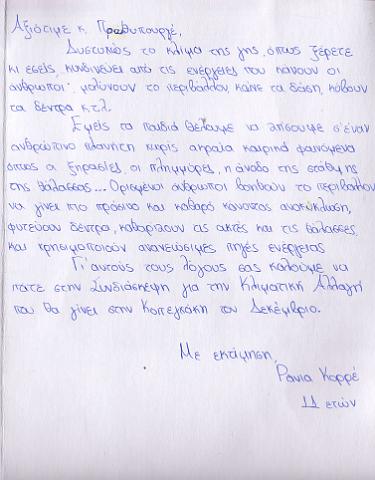 Αξιότιμε κ. Πρωθυπουργέ,
Δυστυχώς το κλίμα της γης, όπως ξέρετε
κι εσείς, κινδυνεύει από τις ενέργειες που κάνουν οι
άνθρωποι: μολύνουν το περιβάλλον, καίνε τα δάση, κόβουν
τα δέντρα κ.τ.λ.
Εμείς τα παιδιά θέλουμε να ζήσουμε σ'έναν
ανθρώπινο πλανήτη χωρίς ακραία καιρικά φαινόμενα
όπως οι ξηρασίες, οι πλημμύρες, η άνοδο της στάθμης
της θάλασσας... Ορισμένοι άνθρωποι βοηθούν το περιβάλλον
να γίνει πιο πράσινο και καθαρό κάνοντας ανακύκλωση,
φυτεύουν δέντρα, καθαρίζουν τις ακτές και τις θάλασσες
και χρησιμοποιούν ανανεώσιμες πηγές ενέργειας
Γι'αυτούς τους λόγους σας καλούμε να
πάτε στην Συνδιάσκεψη για την Κλιματική Αλλαγή
που θα γίνει στην Κοπεγχάγη τον Δεκέμβριο.
Με εκτίμηση,
Ράνια Κορρέ
11 ετών